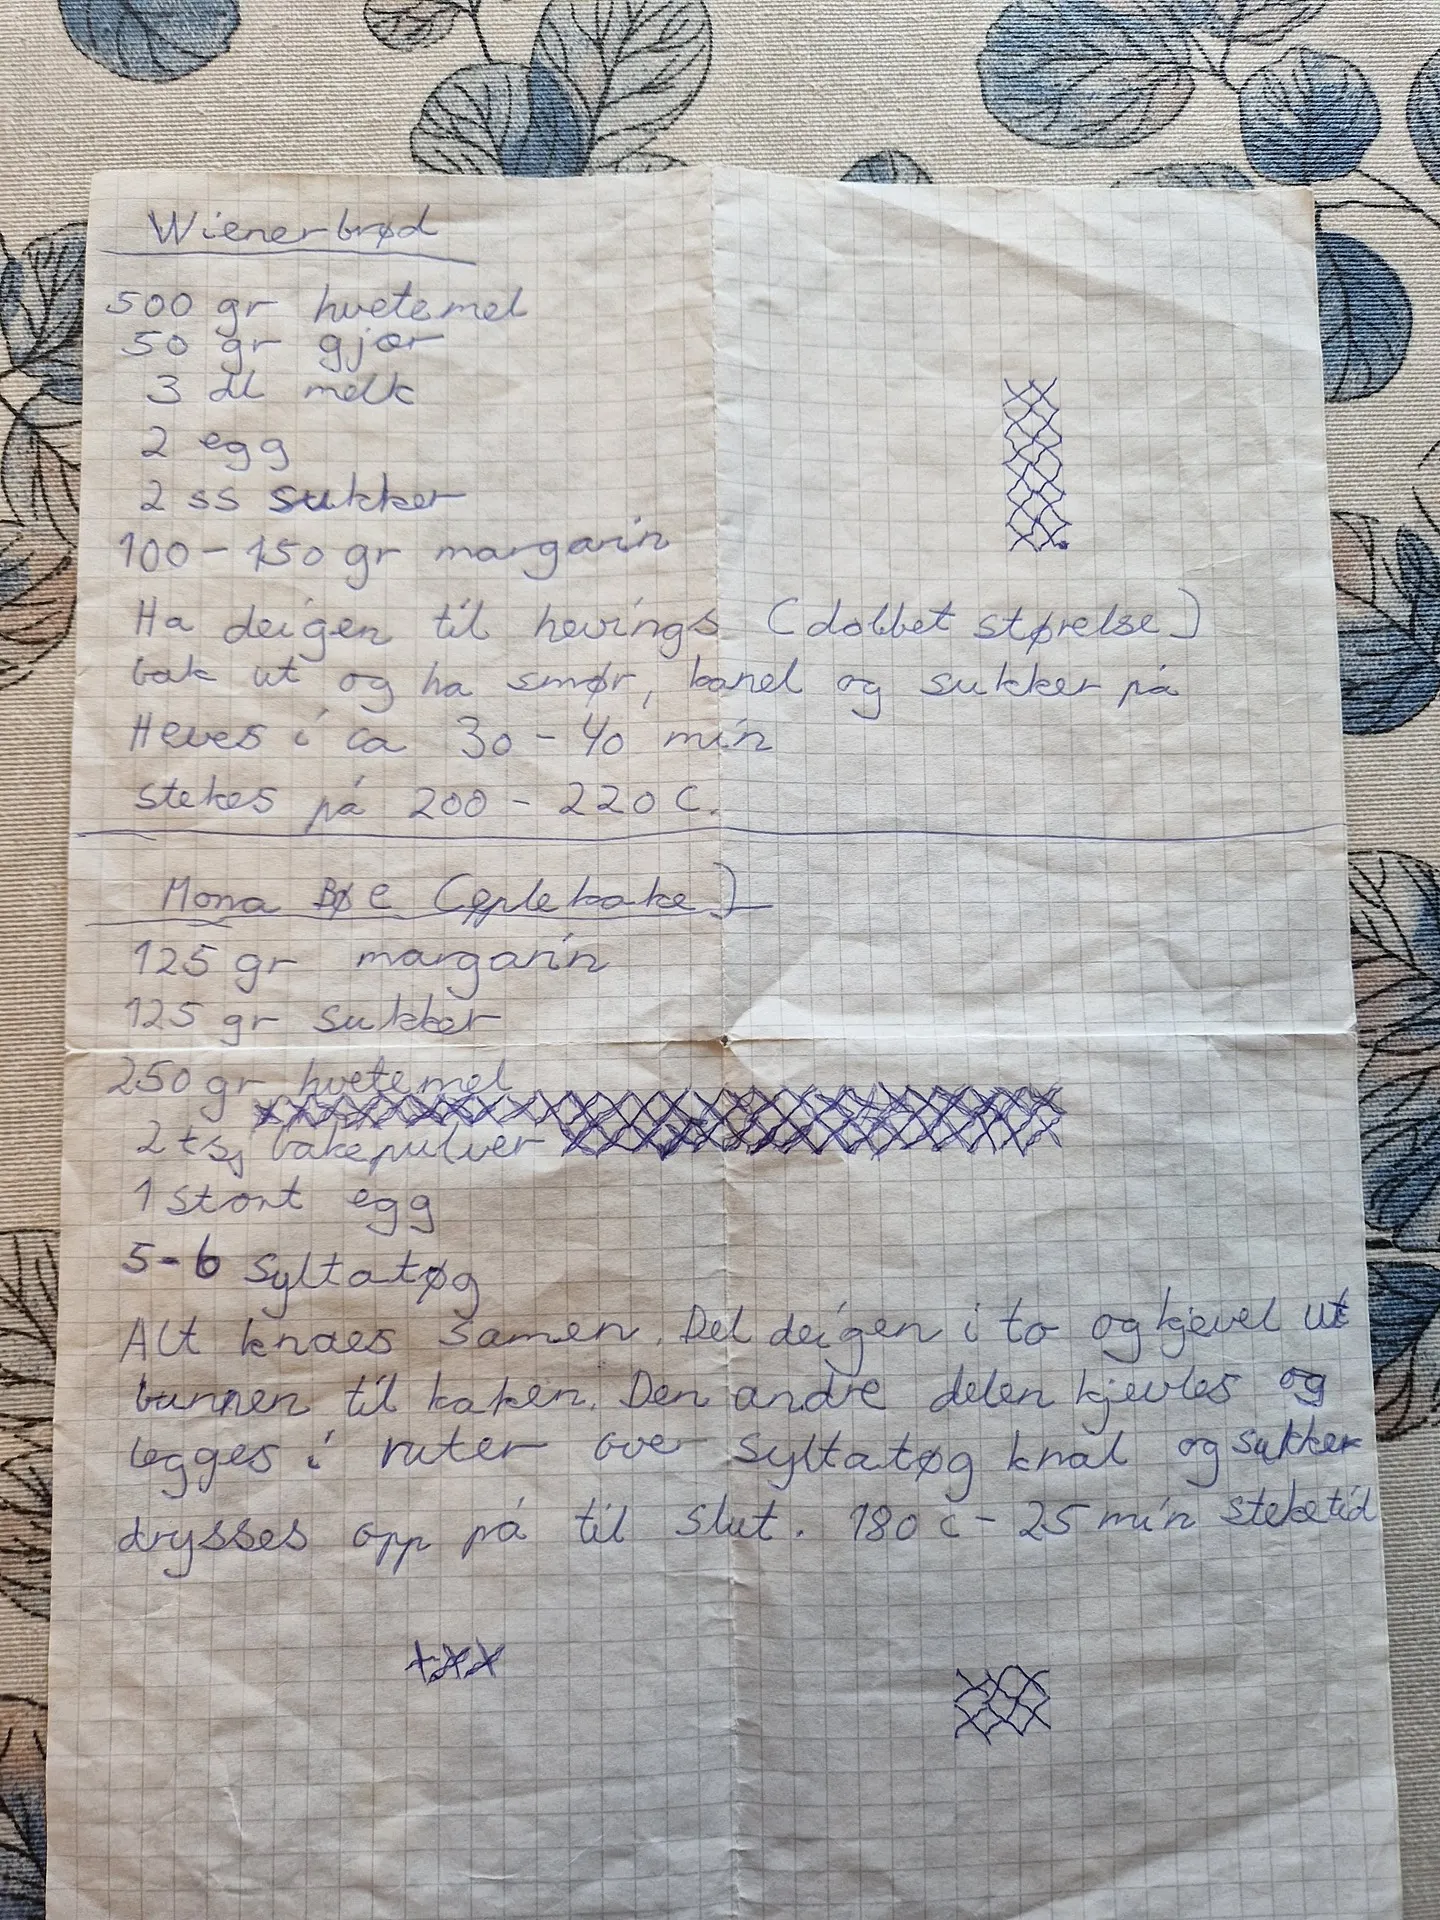 Wienerbrød
500 gr hvetemel
50 gr gjær
3 dl melk
2 egg
2 ss sukker
100-150 gr margarin
Ha deigen til hevings (dobbet størelse)
bak ut og ha smør, kanel og sukker på
Heves i ca 30-40 min
stekes på 200-220 C.
Mona Bøe (Eplekake)
125 gr margarin
125 gr sukker
250 gr hvetemel
2 tsj bakepulver
1 stort egg
5-6 syltatøg
Alt knaes samen. Del deigen i to og kjevel ut
bunnen til kaken. Den andre delen kjevles og
legges i ruter over syltatøg knal og sukker
drysses opp på til slut. 180 c - 25 min steketid